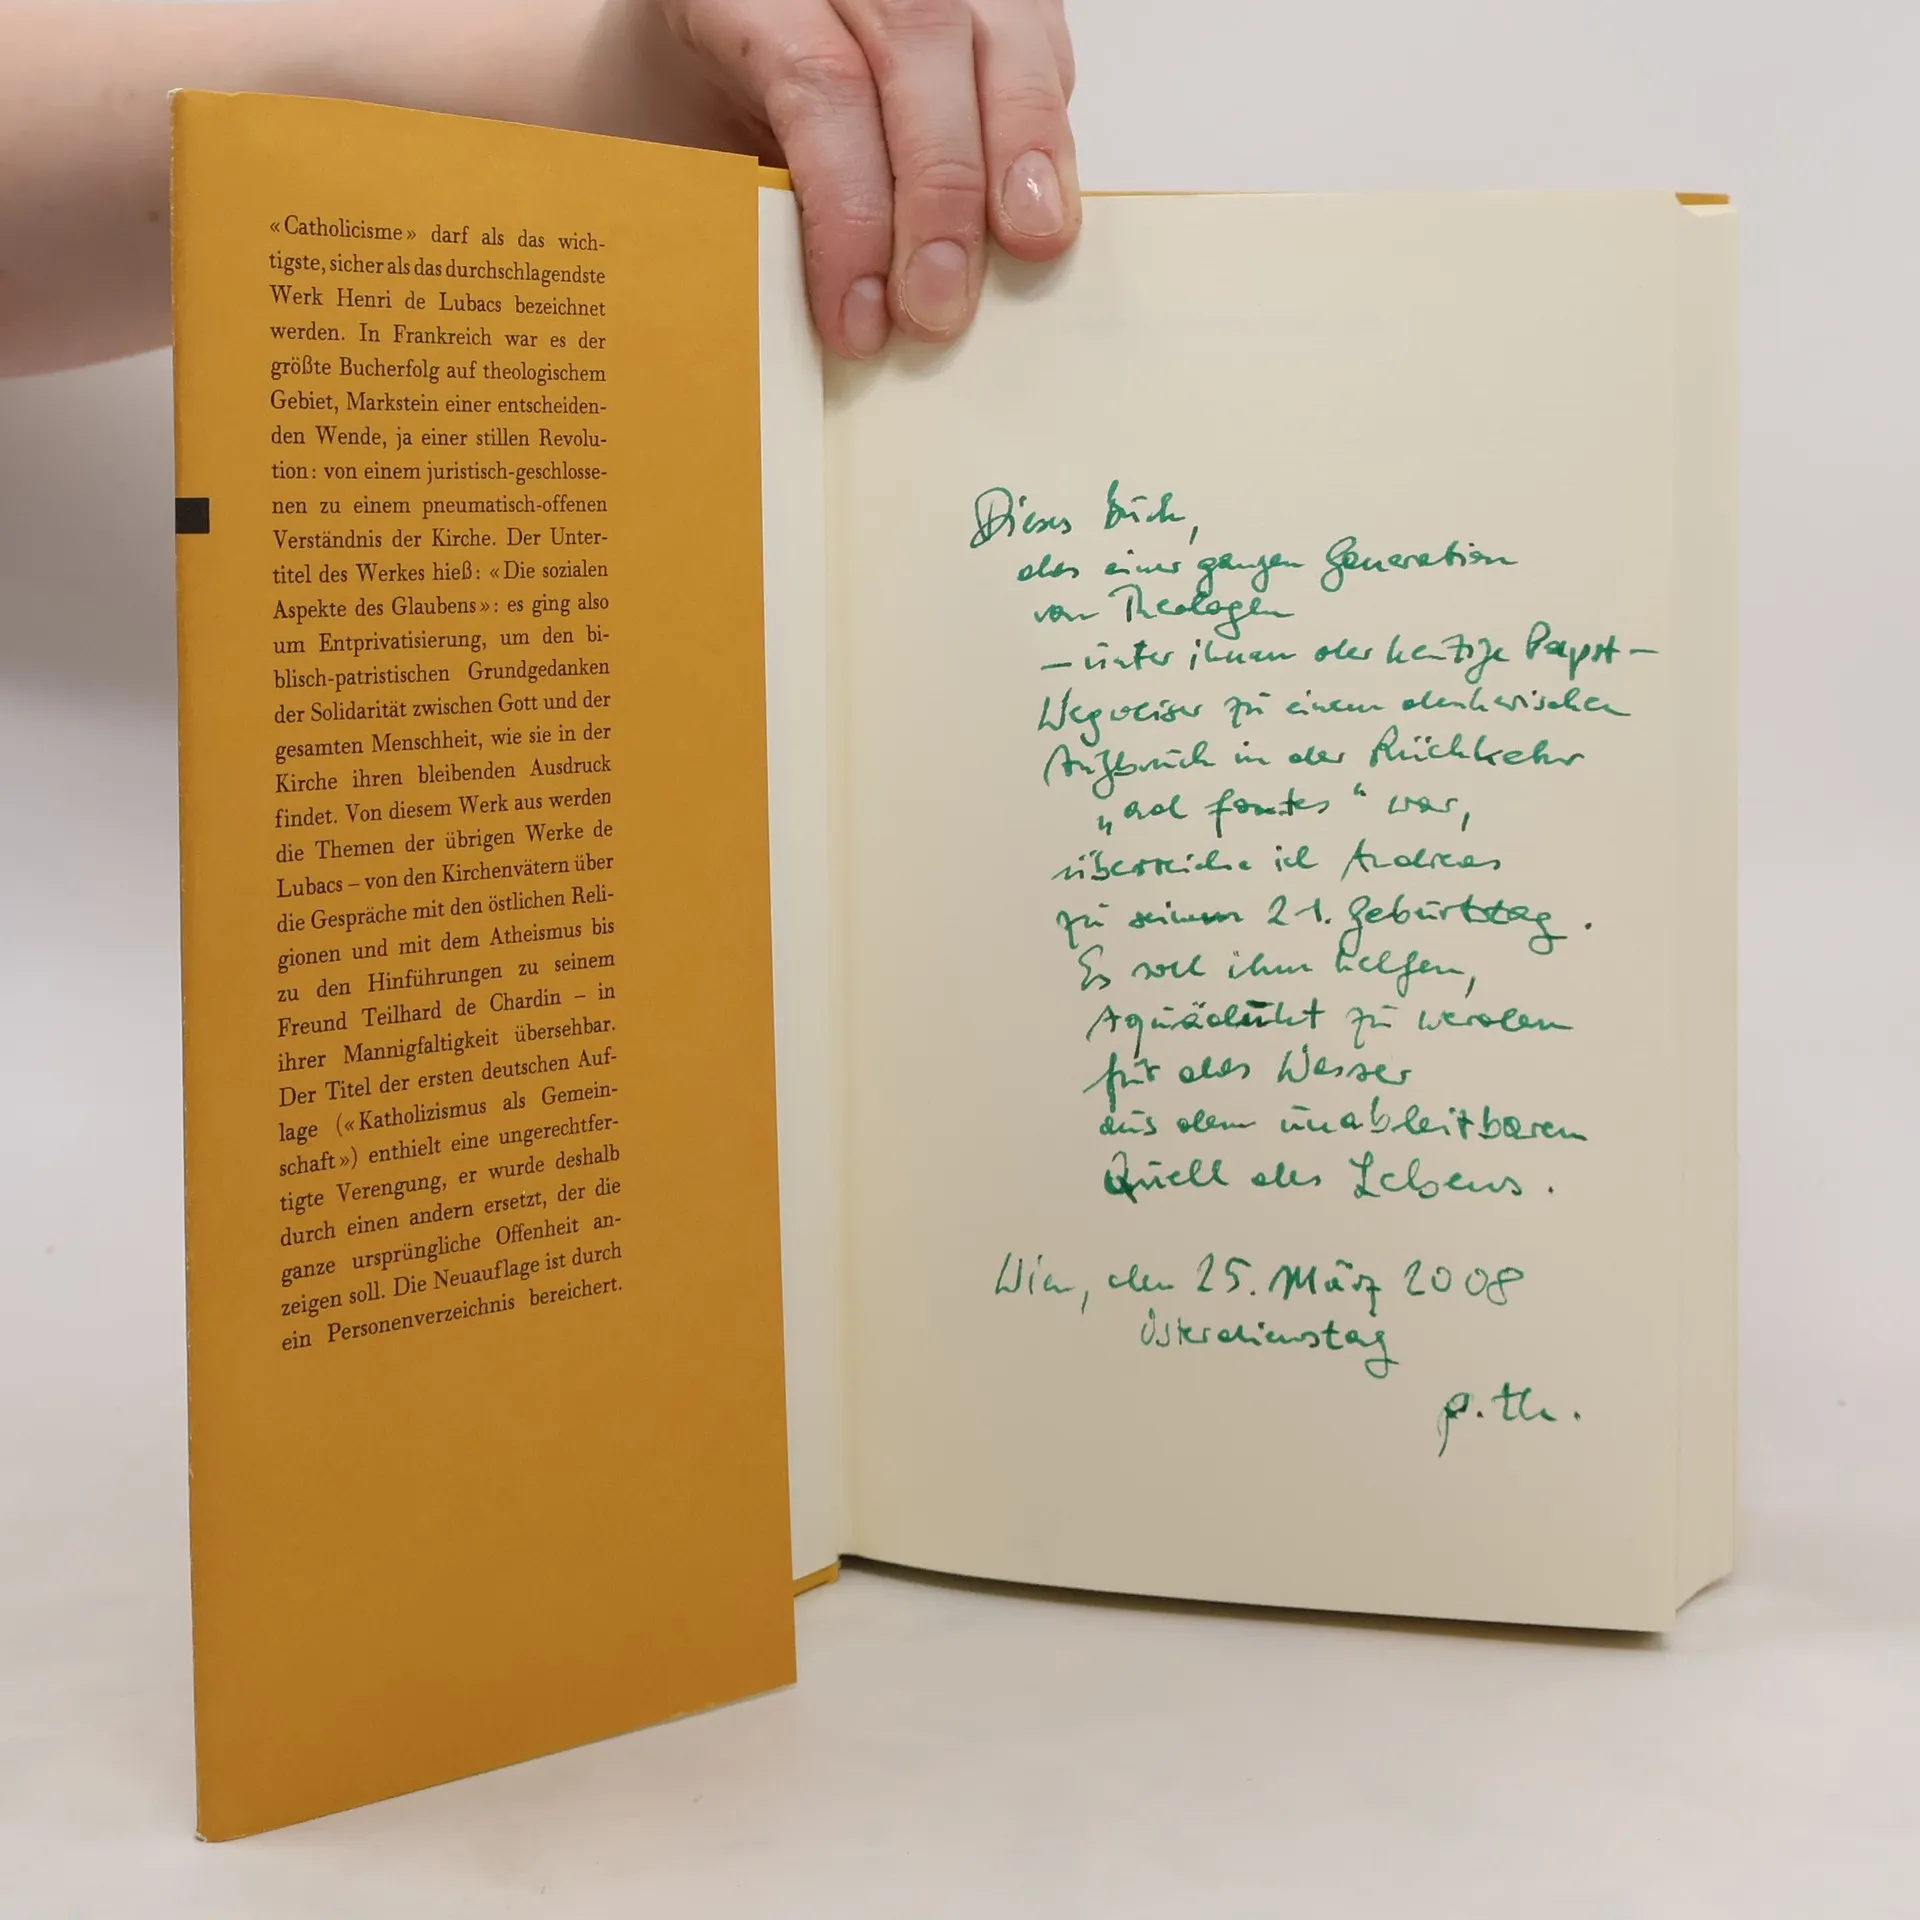 «Catholicisme» darf als das wich-
tigste, sicher als das durchschlagendste
Werk Henri de Lubacs bezeichnet
werden. In Frankreich war es der
größte Bucherfolg auf theologischem
Gebiet, Markstein einer entscheiden-
den Wende, ja einer stillen Revolu-
tion: von einem juristisch-geschlosse-
nen zu einem pneumatisch-offenen
Verständnis der Kirche. Der Unter-
titel des Werkes hieß: «Die sozialen
Aspekte des Glaubens»: es ging also
um Entprivatisierung, um den bi-
blisch-patristischen Grundgedanken
der Solidarität zwischen Gott und der
gesamten Menschheit, wie sie in der
Kirche ihren bleibenden Ausdruck
findet. Von diesem Werk aus werden
die Themen der übrigen Werke de
Lubacs – von den Kirchenvätern über
die Gespräche mit den östlichen Reli-
gionen und mit dem Atheismus bis
zu den Hinführungen zu seinem
Freund Teilhard de Chardin – in
ihrer Mannigfaltigkeit übersehbar.
Der Titel der ersten deutschen Auf-
lage («Katholizismus als Gemein-
schaft») enthielt eine ungerechtfer-
tigte Verengung, er wurde deshalb
durch einen andern ersetzt, der die
ganze ursprüngliche Offenheit an-
zeigen soll. Die Neuauflage ist durch
ein Personenverzeichnis bereichert.
Dieses Buch,
das einer ganzen Generation
von Theologen
– unter ihnen der heutige Papst –
Wegweiser zu einem denkerischen
Aufbruch in der Rückkehr
„ad fontes“ war,
überreiche ich Andreas
zu seinem 21. Geburtstag.
Es soll ihm helfen,
Aquädukt zu werden
für das Wasser
aus dem unableitbaren
Quell des Lebens.
Wien, den 25. März 2008
Osterdienstag
p. th.